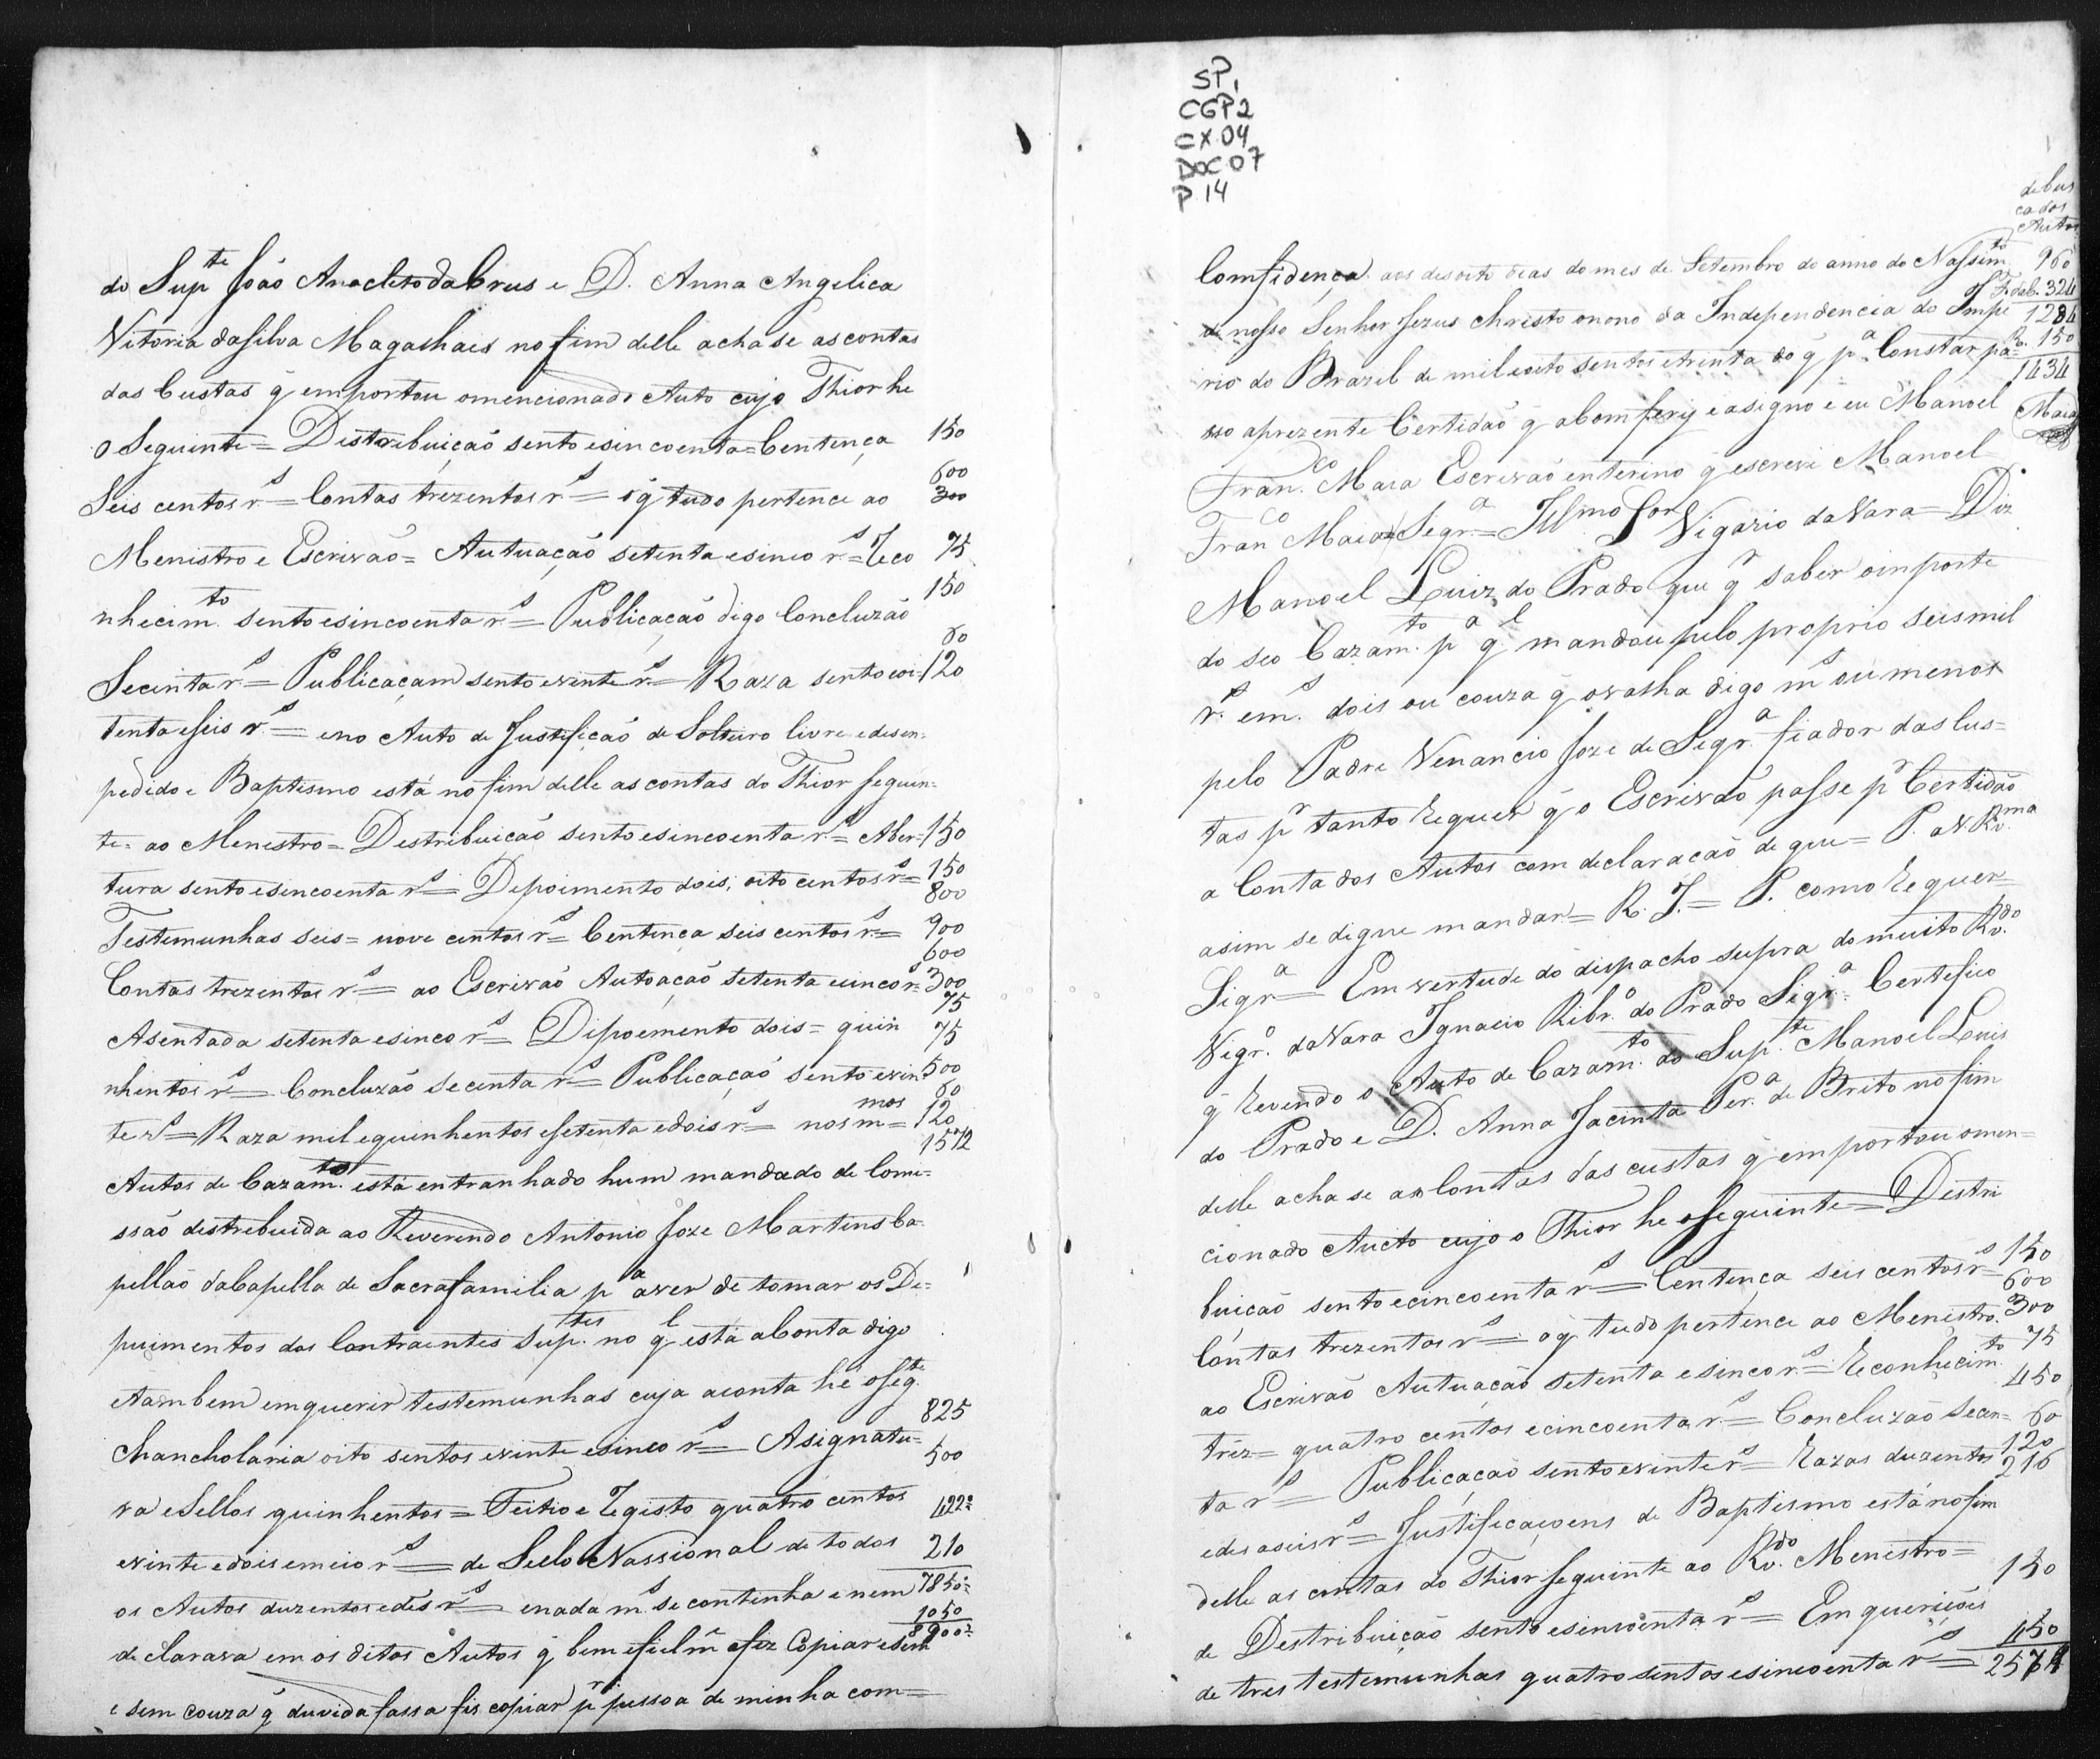 do Sup.te João Anacleto da Crus e D. Anna Angelica
Vitoria da Silva Magalhais no fim delle acha se as contas
das Custas q̃ emportou o mencionado Auto cujo Thior he
o Seguinte = Distorebuiçaõ sento e sincoenta = Centença 150
Seis centos r.s = Contas trezentos r.s = o q̃ tudo pertence ao 600 300
Menistro e Escrivaõ = Autuaçaõ setenta e sinco r.s = Reco 75
nhecim.to sento e sincoenta r.s = Publicaçaõ digo Concluzaõ 150
Secenta r.s = Publicaçam sento e vinte r.s = Raza sento e oi= 60 120
tenta e seis r.s = e no Auto de Justificaõ de Solteiro livre e desen=
pedido e Baptismo está no fim delle as contas do Thior seguin=
te = ao Menestro = Destribuicaõ sento e sincoenta r.s = Aber= 150
tura sento e sincoenta r.s = Depoimento dois, oito centos r.s = 150 800
Testemunhas seis = nove centos r.s = Centença seis centos r.s = 900 600
Contas trezentos r.s = ao Escrivaõ Autoaçaõ setenta e cinco r.s = 300 75
Asentada setenta e sinco r.s = Dipoemento dois = quin 75
nhentos r.s = Concluzaõ secenta r.s = Publicaçaõ sento e vin= 500 60
te r.s = Raza mil e quinhentos e setenta e dois r.s = nos m.mos = 120 1572
Autos de Cazam.to está entranhado hum mandado de Come=
ssaõ distrebuida ao Reverendo Antonio Joze Martins Ca=
pellaõ da Capella de Sacrafamilia p.a aver de tomar os De=
puimentos dos Contraentes Sup.tes no q.l está a Conta digo
e tambem enquerir testemunhas cuja a conta he o seg.te
Chancholaria oito sentos e vinte e sinco r.s = Asignatu= 825
ra e Sellos quinhentos = Feitio e Registo quatro centos 500
e vinte e dois e meio r.s = de Sello Nassional de todos 422= 210
os Autos duzentos e des r.s = e nada m.s se continha e nem 7850=
declarava em os ditos Autos q̃ bem e fielm.e e fiz Copiar e sem 1050 8900=
e sem couza q̃ duvida fassa fis copiar p.r pessoa de minha com=
SP,
CGP2
CX.04
DOC 07
P 14
de bus
ca dos
Autos
Comfidença aos desoito dias do mes de Setembro do anno do Nassim.to 960
de nosso Senhor Jezus Christo o nono da Independencia do Impe 324 1284
rio do Brazil de mil e oito sentos e trinta do q̃ p.a Constar pa= 150 1434
sso a prezente Certidaõ q̃ a bom ferij e asigno e eu Manoel Maia
Fran.co Maia Escrivaõ enterino q̃ escrevi Manoel
Fran.co Maia Segr.a = Ill.mo Snr Vigario da Vara = Diz
Manoel Luiz do Prado que q.r saber o inporte
do seo Cazam.to p.a q.l mandou pelo proprio seis mil
r.s e m.s dois ou couza q̃ o valha digo m.s ou menos
pelo Padre Venancio Joze de Segr.a fiador das Cus=
tas p.r tanto Requer q̃ o Escrivaõ passe p.r Certidaõ
a Conta dos Autos com declaracaõ de que = P. a V. Rv.ma
asim se digne mandar = R. J. = P. como Requer=
Sigr.a = Em vertude do dispacho supra do muito Rv.do
Vigr.o da Vara Ignacio Ribr.o do Prado Sigr.a Certefico
q̃ Revendo o Auto de Cazam.to do Sup.te Manoel Luis
do Prado e D. Anna Jacinta Per.a de Brito no fim
delle acha se as Contas das custas q̃ emportou o men=
cionado Aucto cujo o Thior he o seguinte = Destri
buicaõ sento e cincoenta r.s = Centença seis centos r.s = 150 600
Contas trezentos r.s = o q̃ tudo pertence ao Menistro. 300
ao Escrivaõ Autuaçaõ setenta e sinco r.s = Reconhecim.to 75
trez = quatro centos e cincoenta r.s = Concluzaõ secen= 450 60
ta r.s = Publicaçaõ sento e vinte r.s = Razas duzentos 120 216
e des aseis r.s = Justificaçoens de Baptismo está no fim
delle as contas do Thior seguinte ao Rv.do Menistro =
de Destribuiçaõ sento e sincoenta r.s = Em queriçõis 150
de tres testemunhas quatro sentos e sincoenta r.s = 450 2571